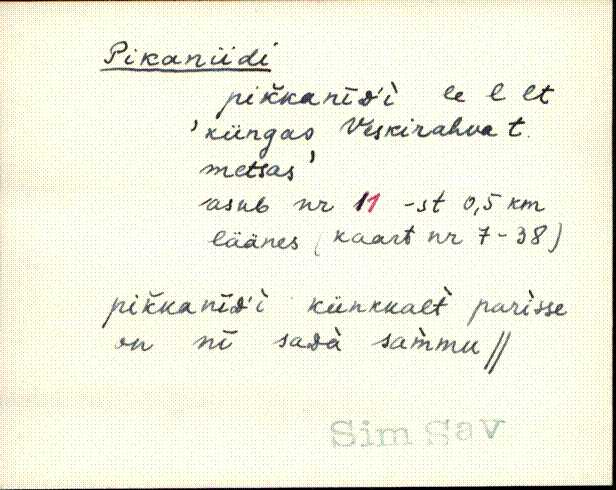 Pikaniidi
pikkanīdì le l lt
'küngas Veskirahva t.
metsas'
asub nr 11 -st 0,5 km
läänes (kaart nr 7-38)
pikkanīdì künkkalt parisse
on nī sadà sammu //
Sim Sav